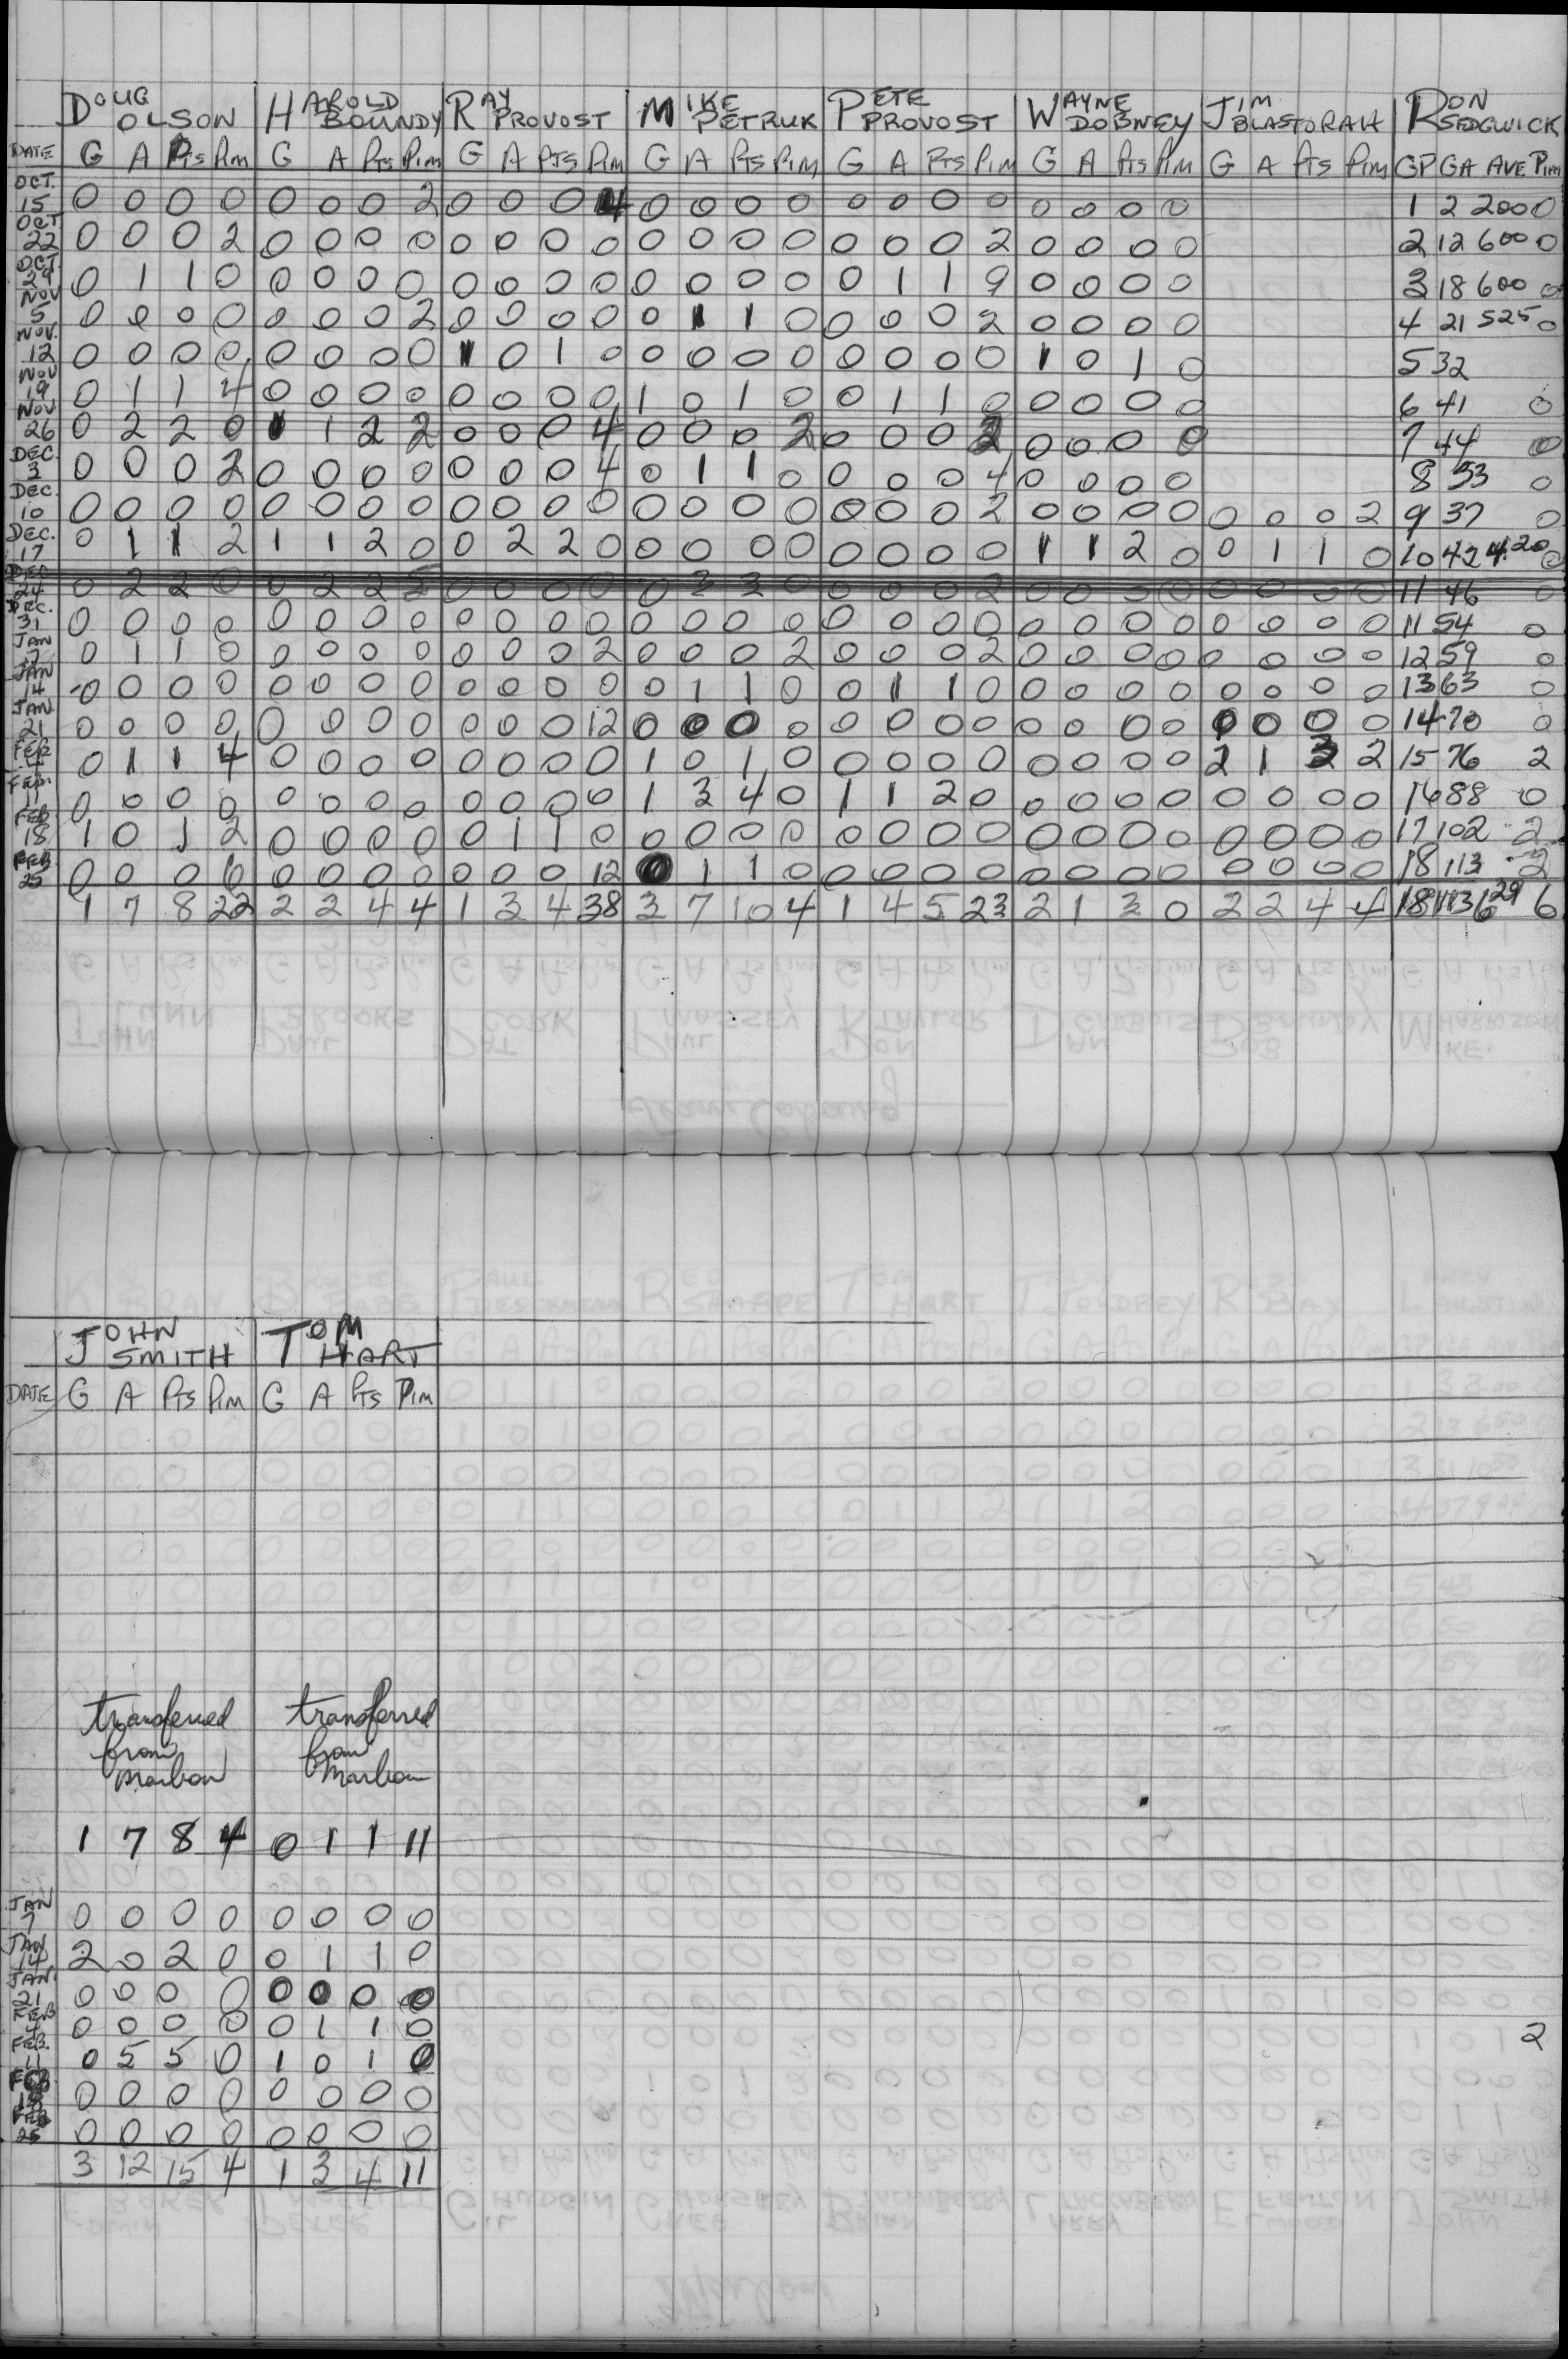 DOUG OLSON HAROLD BOUNDY RAY PROVOST MIKE PETRUK PETE PROVOST WAYNE DOBNEY JIM BLASTORAH RON SEDGWICK
DATE G A Pts Pim G A Pts Pim G A Pts Pim G A Pts Pim G A Pts Pim G A Pts Pim G A Pts Pim GP GA AVE Pim
OCT. 15 0 0 0 0 0 0 0 2 0 0 0 4 0 0 0 0 0 0 0 0 0 0 0 0 1 2 200 0
OCT 22 0 0 0 2 0 0 0 0 0 0 0 0 0 0 0 0 0 0 0 2 0 0 0 0 2 12 600 0
OCT 29 0 1 1 0 0 0 0 0 0 0 0 0 0 0 0 0 0 1 1 9 0 0 0 0 3 18 600 0
NOV 5 0 0 0 0 0 0 0 2 0 0 0 0 0 1 1 0 0 0 0 2 0 0 0 0 4 21 525 0
NOV. 12 0 0 0 0 0 0 0 0 1 0 1 0 0 0 0 0 0 0 0 0 1 0 1 0 5 32
NOV 19 0 1 1 4 0 0 0 0 0 0 0 0 1 0 1 0 0 1 1 0 0 0 0 0 6 41 0
NOV 26 0 2 2 0 1 1 2 2 0 0 0 4 0 0 0 2 0 0 0 2 0 0 0 0 7 44 0
DEC. 3 0 0 0 2 0 0 0 0 0 0 0 4 0 1 1 0 0 0 0 4 0 0 0 0 8 33 0
DEC. 10 0 0 0 0 0 0 0 0 0 0 0 0 0 0 0 0 0 0 0 2 0 0 0 0 0 0 0 2 9 37 0
DEC. 17 0 1 1 2 1 1 2 0 0 2 2 0 0 0 0 0 0 0 0 0 1 1 2 0 0 1 1 0 10 42 4.20 0
DEC 24 0 2 2 0 0 2 2 0 0 0 0 0 3 3 0 0 0 0 2 0 0 0 0 0 0 0 0 11 46 0
DEC. 31 0 0 0 0 0 0 0 0 0 0 0 0 0 0 0 0 0 0 0 0 0 0 0 0 0 0 0 0 11 54 0
JAN 7 0 1 1 0 0 0 0 0 0 0 0 2 0 0 0 2 0 0 0 2 0 0 0 0 0 0 0 0 12 59 0
JAN 14 0 0 0 0 0 0 0 0 0 0 0 0 0 1 1 0 0 1 1 0 0 0 0 0 0 0 0 0 13 63 0
JAN 21 0 0 0 0 0 0 0 0 0 0 0 12 0 0 0 0 0 0 0 0 0 0 0 0 0 0 0 0 14 70 0
FEB 4 0 1 1 4 0 0 0 0 0 0 0 0 1 0 1 0 0 0 0 0 0 0 0 0 2 1 3 2 15 76 2
FEB. 11 0 0 0 0 0 0 0 0 0 0 0 0 1 3 4 0 1 1 2 0 0 0 0 0 0 0 0 0 16 88 0
FEB 18 1 0 1 2 0 0 0 0 0 1 1 0 0 0 0 0 0 0 0 0 0 0 0 0 0 0 0 0 17 102 2
FEB 25 0 0 0 6 0 0 0 0 0 0 0 12 0 1 1 0 0 0 0 0 0 0 0 0 0 0 0 0 18 113 2
1 7 8 22 2 2 4 4 1 3 4 38 3 7 10 4 1 4 5 23 2 1 3 0 2 2 4 4 18 113 6 29 6
JOHN SMITH TOM HART
DATE G A Pts Pim G A Pts Pim
transferred transferred
from from
Marbon Marbon
1 7 8 4 0 1 1 11
JAN 7 0 0 0 0 0 0 0 0
JAN 14 2 0 2 0 0 1 1 0
JAN 21 0 0 0 0 0 0 0 0
FEB 4 0 0 0 0 0 1 1 0 2
FEB. 11 0 5 5 0 1 0 1 0
FEB 18 0 0 0 0 0 0 0 0
FEB 25 0 0 0 0 0 0 0 0
3 12 15 4 1 3 4 11